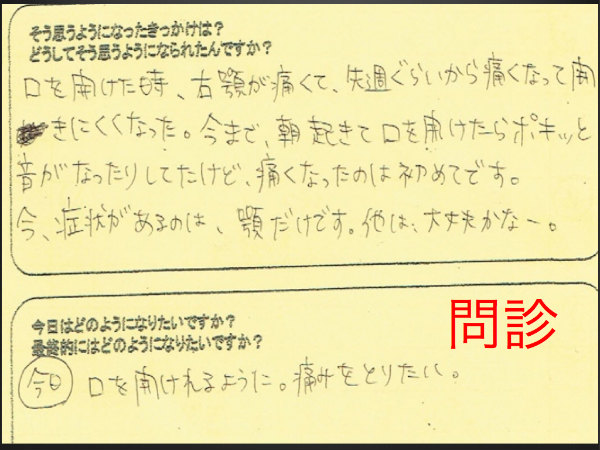 そう思うようになったきっかけは?
どうしてそう思うようになられたんですか?
口を開けた時、右顎が痛くて、先週ぐらいから痛くなって開
きにくくなった。今まで、朝起きて口を開けたらポキッと
音がなったりしてたけど、痛くなったのは初めてです。
今、症状があるのは、顎だけです。他は、大丈夫かなー。
今日はどのようになりたいですか?
最終的にはどのようになりたいですか?
問診
今日 口を開けれるように。痛みをとりたい。